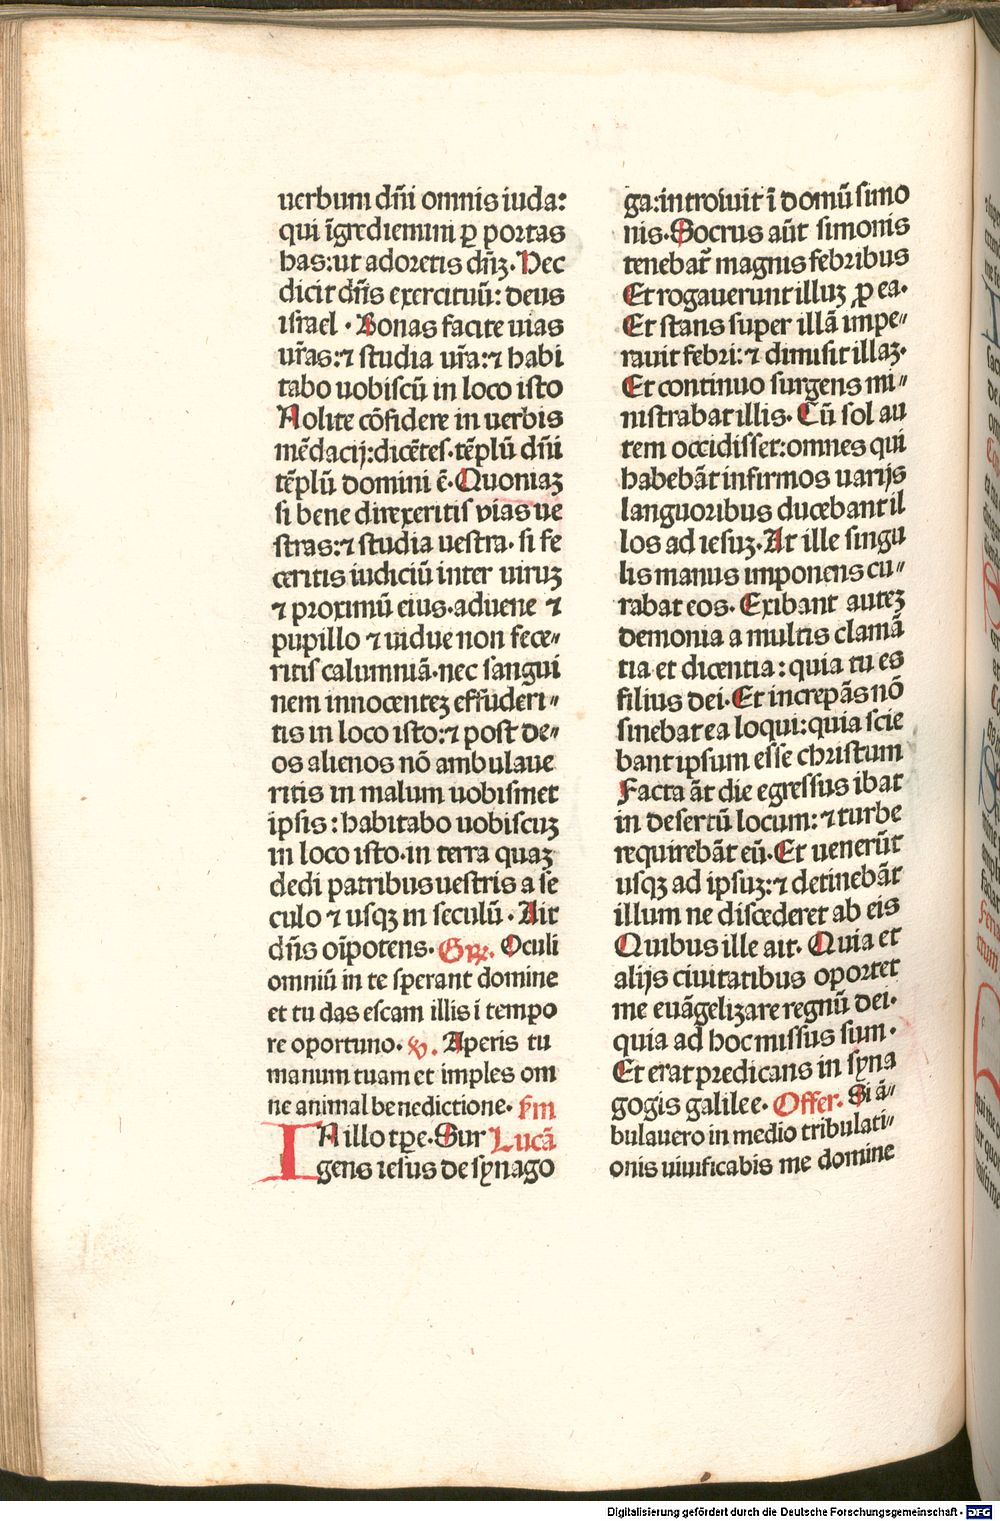 uerbum dñi omnis iuda:
qui ĩgrediemini ꝑ portas
has: ut adoretis dñꝫ. Hec
dicit dñs exercituũ: deus
israel. Bonas facite uias
ur̃as: ⁊ studia ur̃a: ⁊ habi
tabo uobiscũ in loco isto
Nolite cõfidere in uerbis
mẽdacij: dicẽtes. tẽplũ dñi
tẽplũ domini ẽ. Quoniaꝫ
si bene direxeritis vias ue
stras: ⁊ studia uestra. si fe
ceritis iudiciũ inter uiruꝫ
⁊ proximũ eius. aduene ⁊
pupillo ⁊ uidue non fece⸗
ritis calumniã. nec sangui
nem innocenteꝫ effuderi⸗
tis in loco isto: ⁊ post de⸗
os alienos nõ ambulaue
ritis in malum uobismet
ipsis: habitabo uobiscuꝫ
in loco isto. in terra quaꝫ
dedi patribus uestris a se
culo ⁊ usqꝫ in seculũ. Ait
dñs oĩpotens. Grꝝ. Oculi
omniũ in te sperant domine
et tu das escam illis ĩ tempo
re oportuno. ℣. Aperis tu
manum tuam et imples om
ne animal benedictione. ẜm
IN illo tꝑe. Sur Lucã
gens iesus de synago
ga: introiuit ĩ domũ simo
nis. Socrus aũt simonis
tenebat̃ magnis febribus
Et rogauerunt illuꝫ ꝓ ea.
Et stans super illã impe⸗
rauit febri: ⁊ dimisit illaꝫ.
Et continuo surgens mi⸗
nistrabat illis. Cũ sol au
tem occidisset: omnes qui
habebãt infirmos uarijs
languoribus ducebant il
los ad iesuꝫ. At ille singu
lis manus imponens cu⸗
rabat eos. Exibant auteꝫ
demonia a multis clamã
tia et dicentia: quia tu es
filius dei. Et increpãs nõ
sinebat ea loqui: quia scie
bant ipsum esse christum
Facta ãt die egressus ibat
in desertũ locum: ⁊ turbe
requirebãt eũ. Et uenerũt
usqꝫ ad ipsuꝫ: ⁊ detinebãt
illum ne discederet ab eis
Quibus ille ait. Quia et
alijs ciuitatibus oportet
me euãgelizare regnũ dei.
quia ad hoc missus sum.
Et erat predicans in syna
gogis galilee. Offer. Si ã⸗
bulauero in medio tribulati⸗
onis uiuificabis me domine
Digitalisierung gefördert durch die Deutsche Forschungsgemeinschaft - DFG